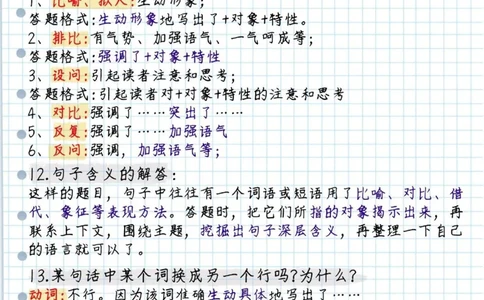 1、比喻、拟人:生动形象;
答题格式:生动形象地写出了+对象+特性。
2、排比:有气势、加强语气、一气呵成等;
答题格式:强调了+对象+特性
3、设问:引起读者注意和思考;
答题格式:引起读者对+对象+特性的注意和思考
4、对比:强调了……突出了……
5、反复:强调了……加强语气
6、反问:强调,加强语气等;
12.句子含义的解答:
这样的题目,句子中往往有一个词语或短语用了比喻、对比、借
代、象征等表现方法。答题时,把它们所指的对象揭示出来,再
联系上下文,围绕主题,挖掘出句子深层含义,再整理一下自己
的语言就可以了。
13.某句话中某个词换成另一个行吗?为什么?
动词:不行。因为该词准确生动具体地写出了……